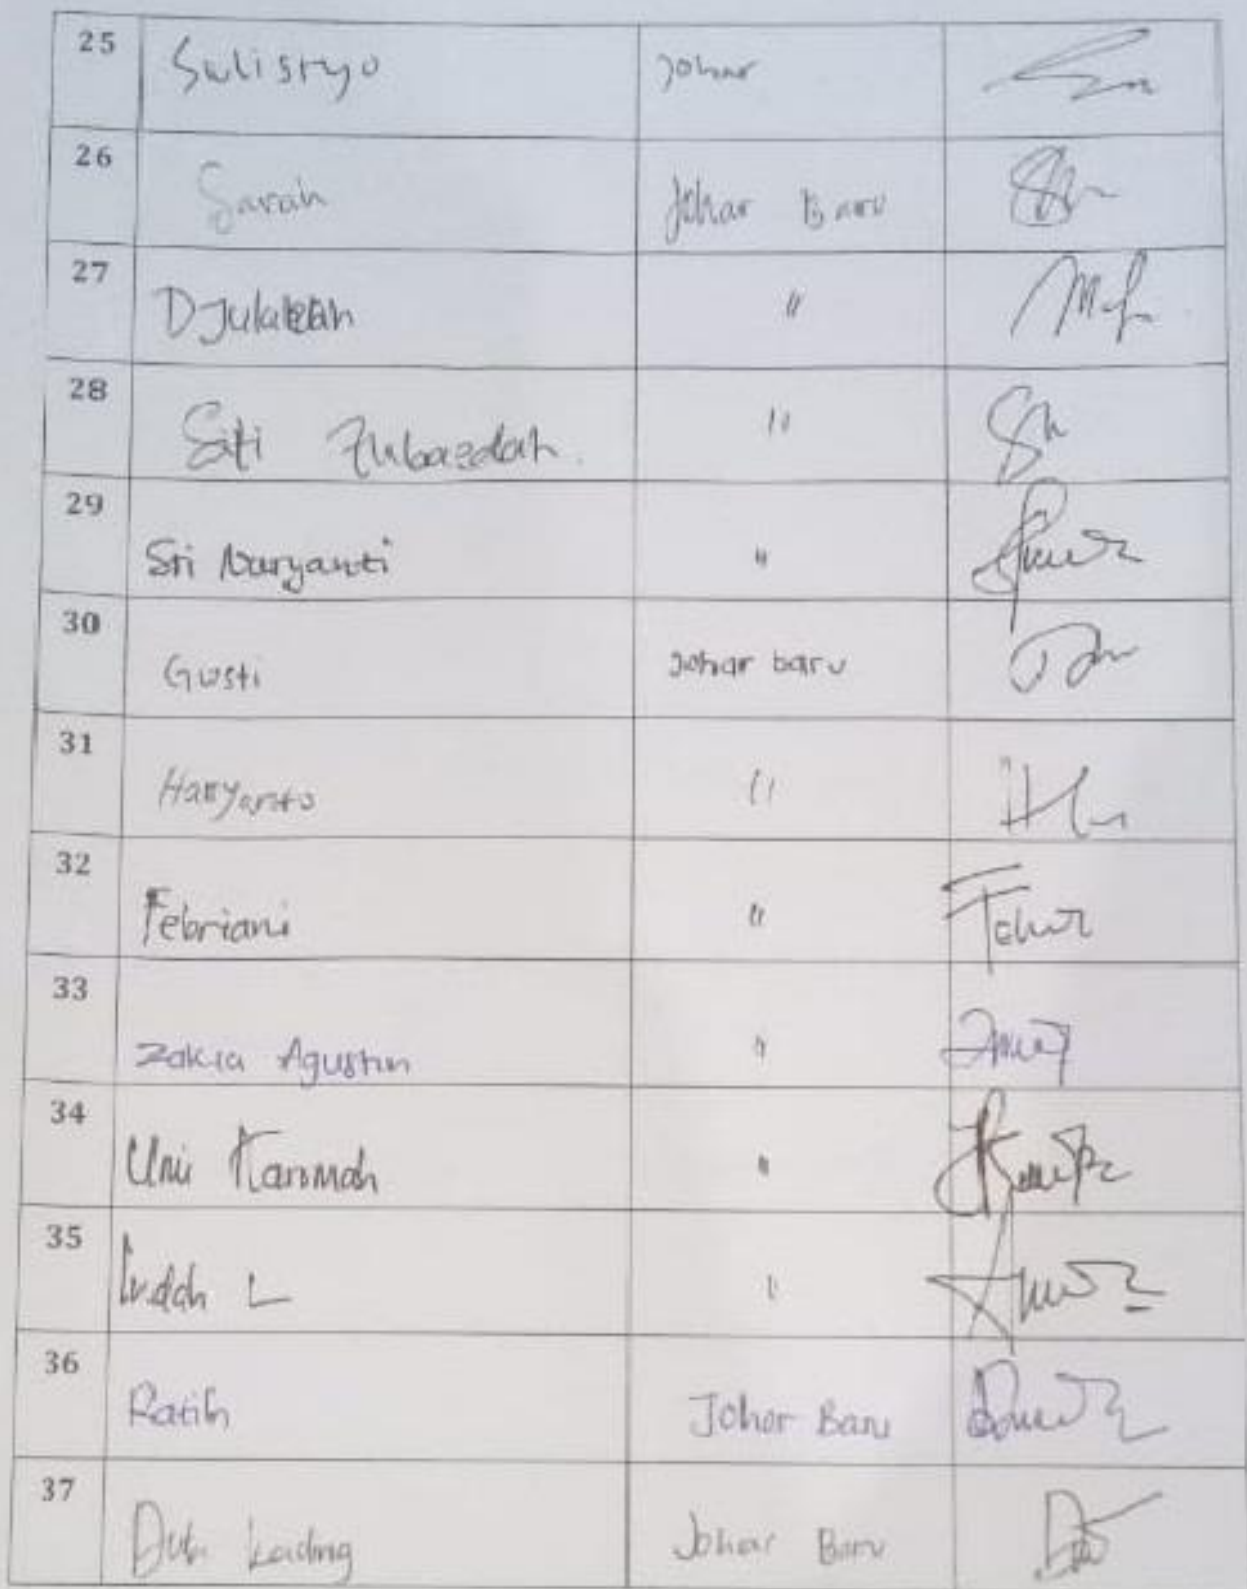 25 Sulistyo Johar
26 Sarah Johar Baru
27 Djulaekah "
28 Siti Zubaedah. "
29 Sri Naryanti "
30 Gusti Johar baru
31 Haryanto "
32 Febriani "
33 Zakia Agustin "
34 Umi Karomah "
35 Indah L "
36 Ratih Johar Baru
37 Johar Baru